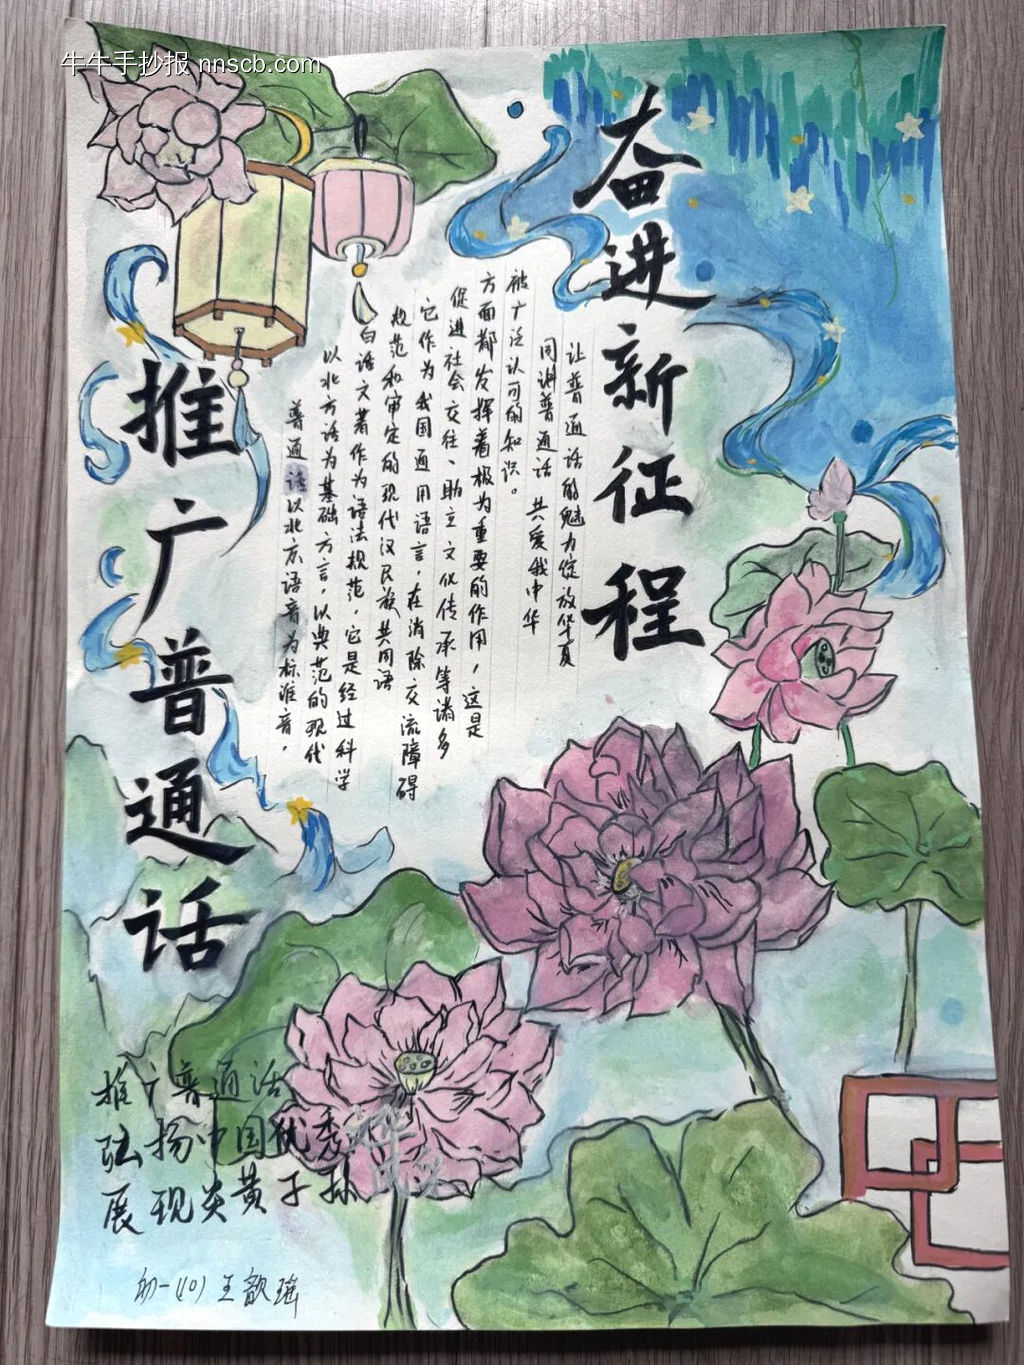 牛牛手抄报 nnscb.com
推广普通话
奋进新征程
普通话以北京语音为标准音，
以北方话为基础方言，以典范的现代
白话文著作为语法规范，它是经过科学
规范和审定的现代汉民族共同语
它作为我国通用语言，在消除交流障碍
促进社会交往、助立文化传承等诸多
方面都发挥着极为重要的作用，这是
被广泛认可的知识。
同讲普通话 共爱我中华
让普通话的魅力绽放华夏
推广普通话
弘扬中国优秀
展现炎黄子孙
初一（10）王歆瑶